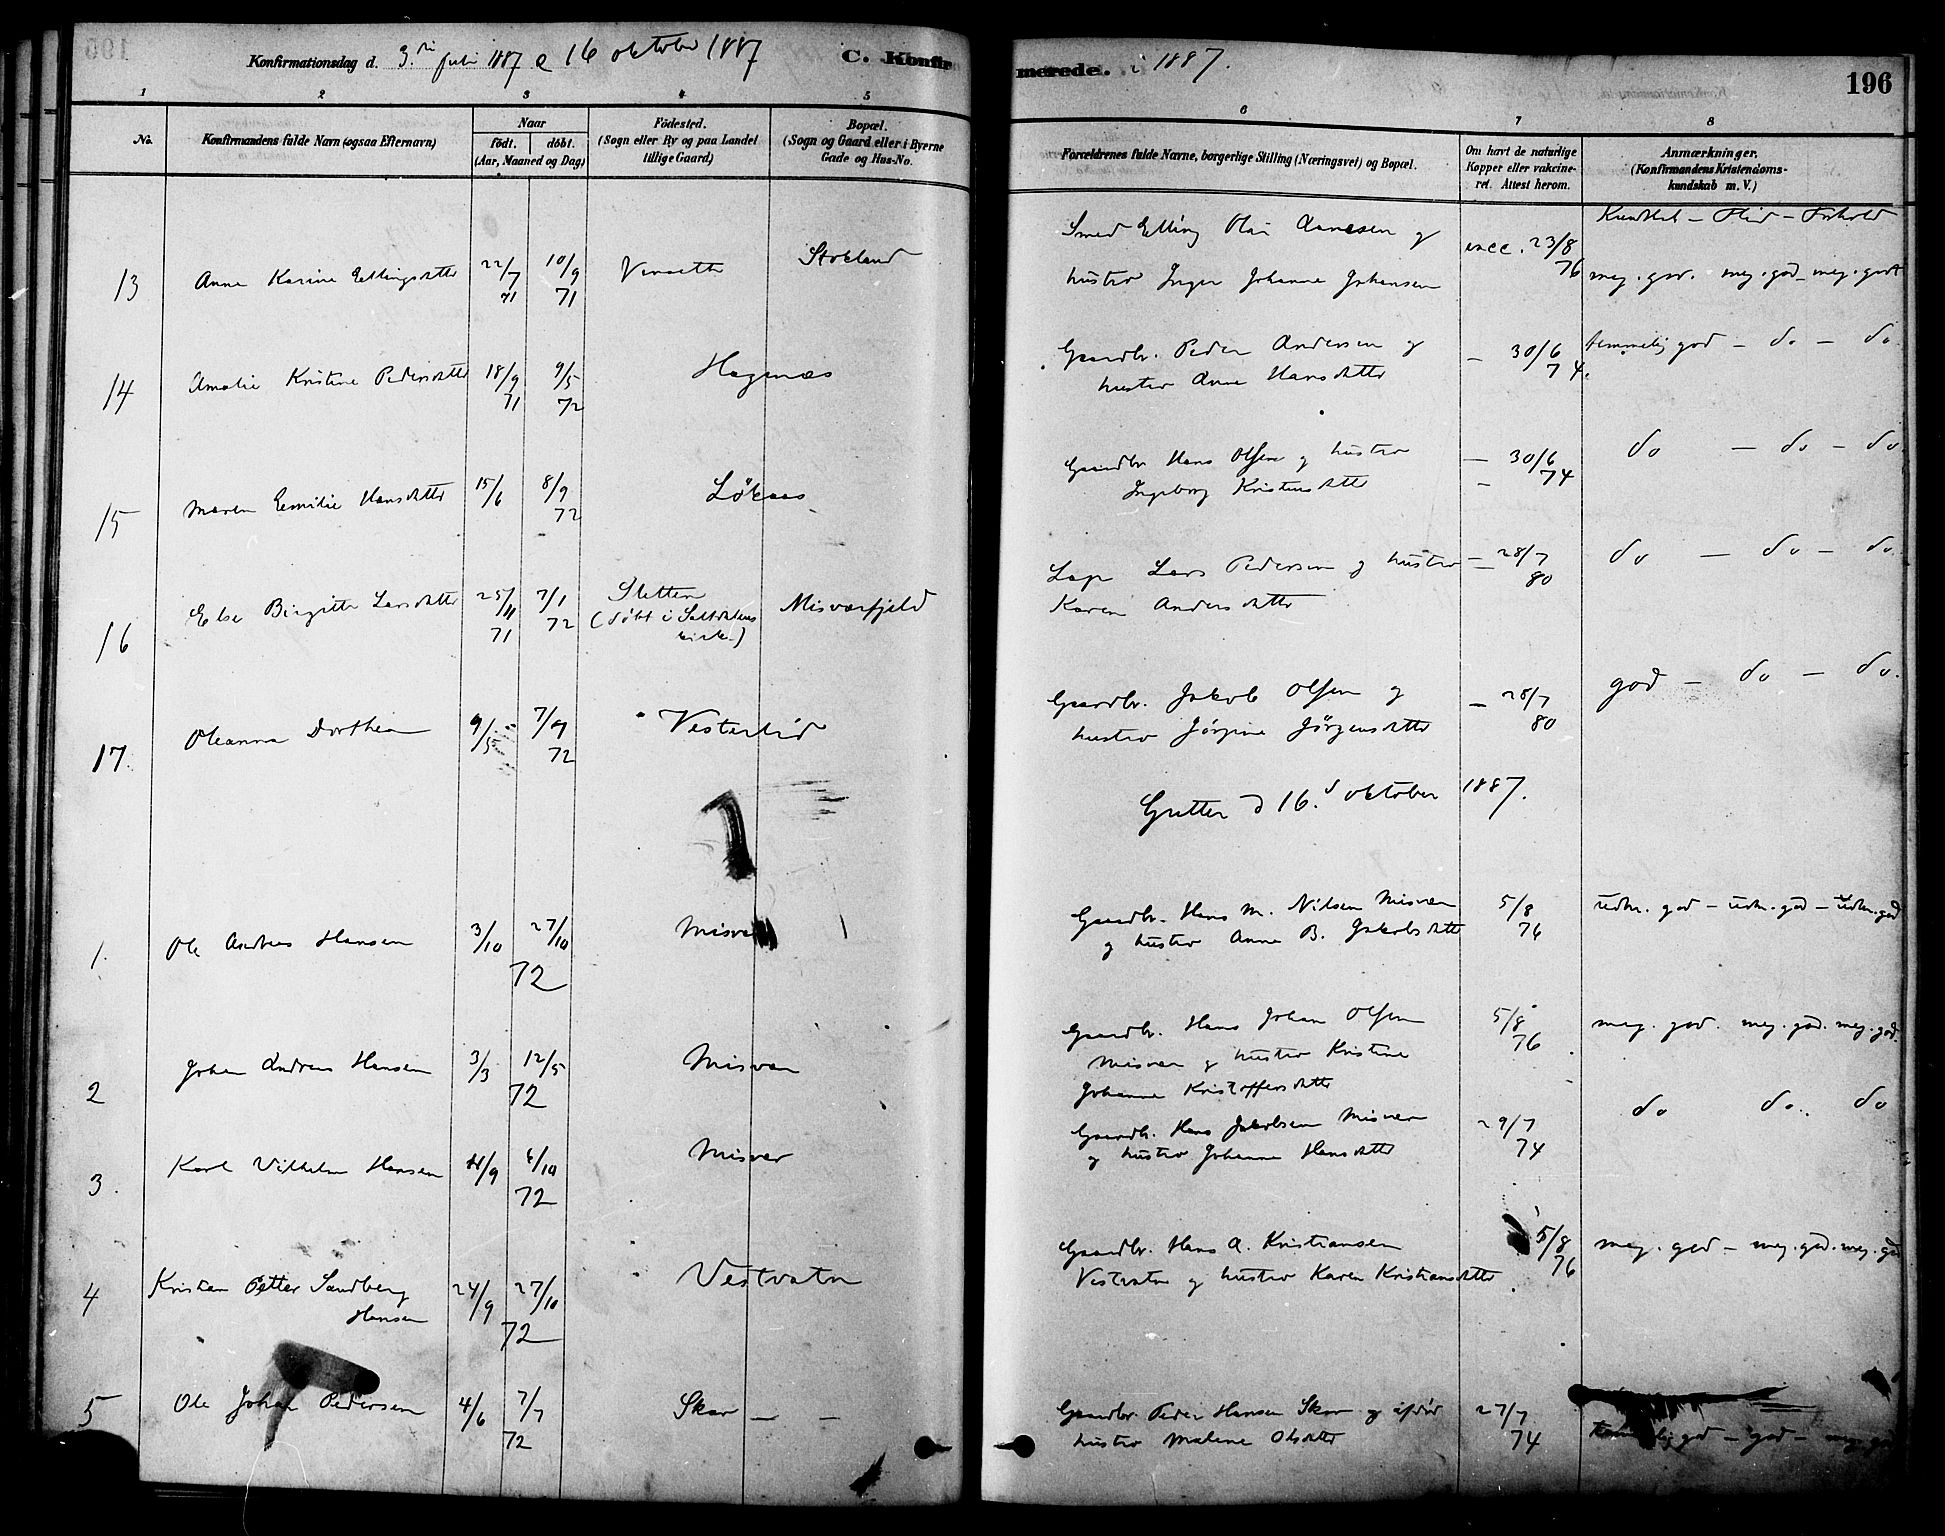 Konfirmationsdag d. 3.die juli 1887 & 16 oktober 1887
C. Konfirmerede. i 1887.
196
1 2 3 4 5 6 7 8
No.
Konfirmandens fulde Navn (ogsaa Efternavn)
Naar
födt. döbt.
(Aar, Maaned og Dag)
Födested.
(Sogn eller By og paa Landet
tillige Gaard)
Bopæl.
(Sogn og Gaard eller i Byerne
Gade og Hus-No.
Forældrenes fulde Navne, borgerlige Stilling (Næringsvei) og Bopæl.
Om havt de naturlige
Kopper eller vakcine-
ret. Attest herom.
Anmærkninger.
(Konfirmandens Kristendoms-
kundskab m. V.)
Kundskab – Flid – Forhold
13 Anna Karine Ellingsdatter 22/7 71 10/9 71 Stokland
Smed Elling Olai
hustro Inger Johanne Johansen
vacc. 23/8 76
meg. god. meg. god – meg. godt
14 Amalie Kristine Pedersdatter 18/9 71 9/5 72 Hagenæs
Gaardbr. Peder Andersen og
hustro Anne Hansdatter
– 30/6 74.
temmelig god – do – do.
15 Maren Emilie Hansdatter 15/6 8/9 72 Lökaas
Gaardbr Hans Olsen og hustro
Ingeborg Kristensdatter
– 30/6 74
do – do – do
16 Else Birgitte Larsdatter 25/11 71 7/1 72 Sletten
(döbt i Saltdalens
kirke) Misværfjeld
Lap Lars Pedersen og hustro
Karen Andersdatter
– 28/7 80
do – do – do.
17. Oleanna Dorthea 9/5 7/9 72 Vesterlid
Gaardbr. Jakob Olsen og
hustro Jörgine Jörgensdatter
– 28/7 80
god – do – do.
Gutter d 16.d oktober 1887.
1. Ole Andreas Hansen 3/10 27/10 72 Misvær
Gaardbr. Hans M. Nilsen Misvær
og hustro Anne B. Jakobsdatter
5/8 76
udm. god – udm. god – udm. god
2 Johan Andreas Hansen 3/3 12/5 72 Misvær
Gaardbr. Hans Johan Olsen
Misvær og hustro Kristine
Johanne Kristoffersdatter
5/8 76
meg. god. meg. god. meg. god.
3. Karl Vilhelm Hansen 11/9 6/10 72 Misvær
Gaardbr. Hans Jakobsen Misvær
og hustro Johanna Hansdatter
29/7 74
do do. do
4 Kristian Petter Sandberg
Hansen 24/9 27/10 72 Vestvatn
Gaardbr. Hans A. Kristiansen
Vestvatn og hustro Karen Kristiansdatter
5/8 76
meg. god – meg. god. meg. god
5 Ole Johan Pedersen 4/6 7/7 72 Skar – –
Gaardbr. Peder Hansen Skar og afdöd
hustro Malene Olsdatter
27/7 74
temmelig god – god – meg. god